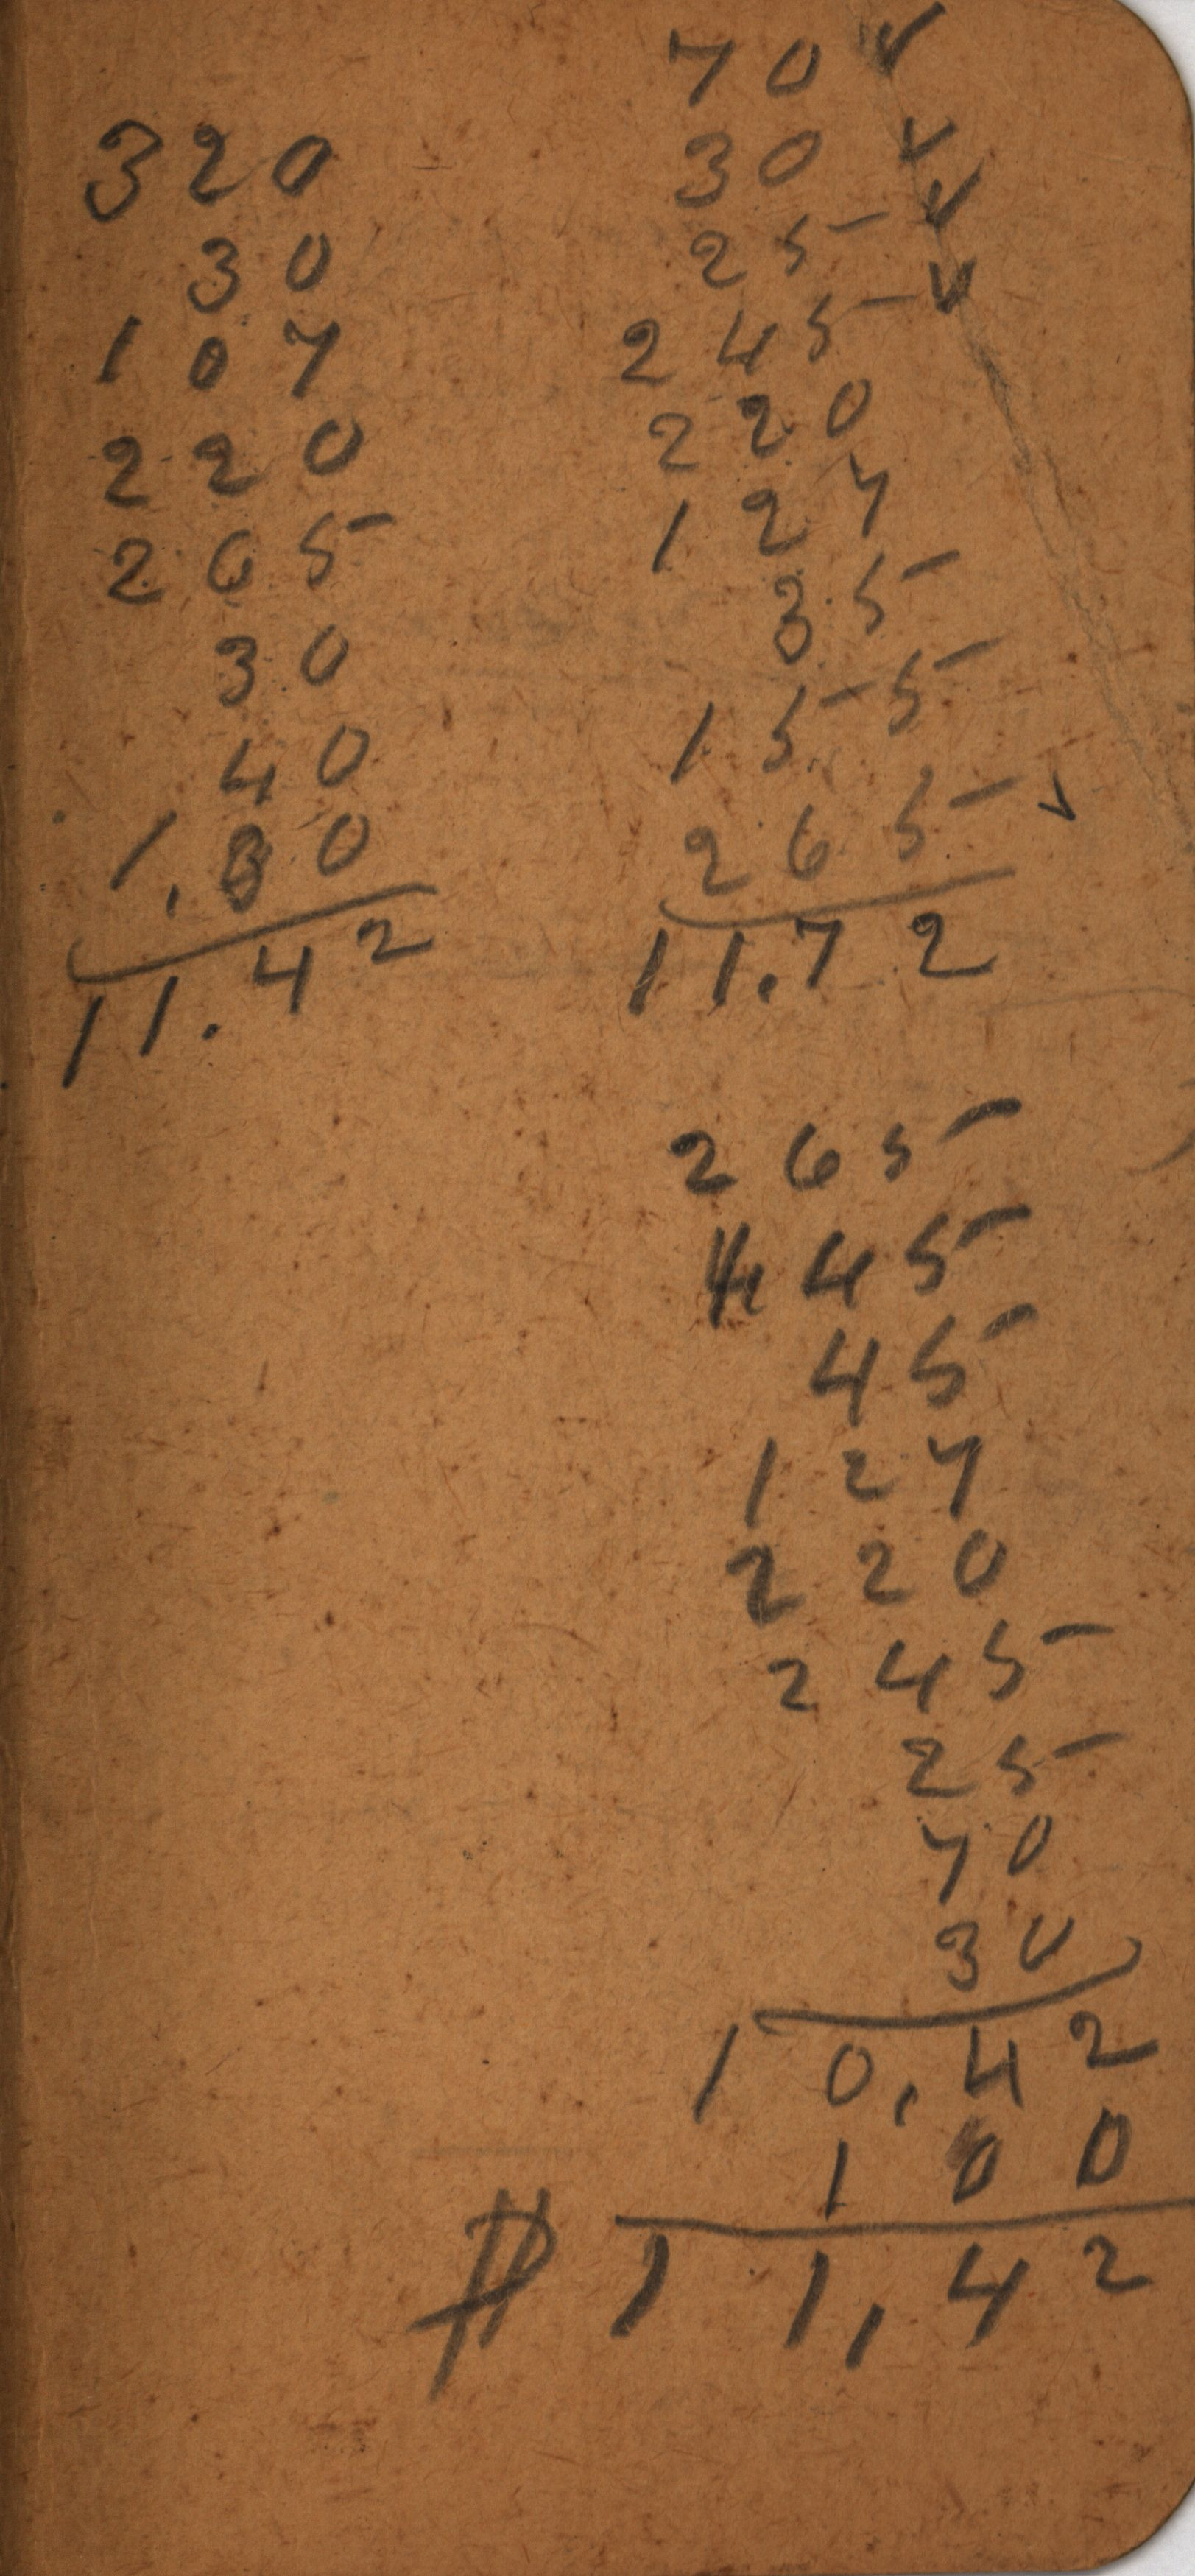 320
30
107
220
265
30
40
1.30
11.42
70 ✓
30 ✓
25 ✓
245 ✓
220
127
35
155
265 ✓
11.72
265
445
45
127
220
245
25
70
30
10,42
100
$ 11,42